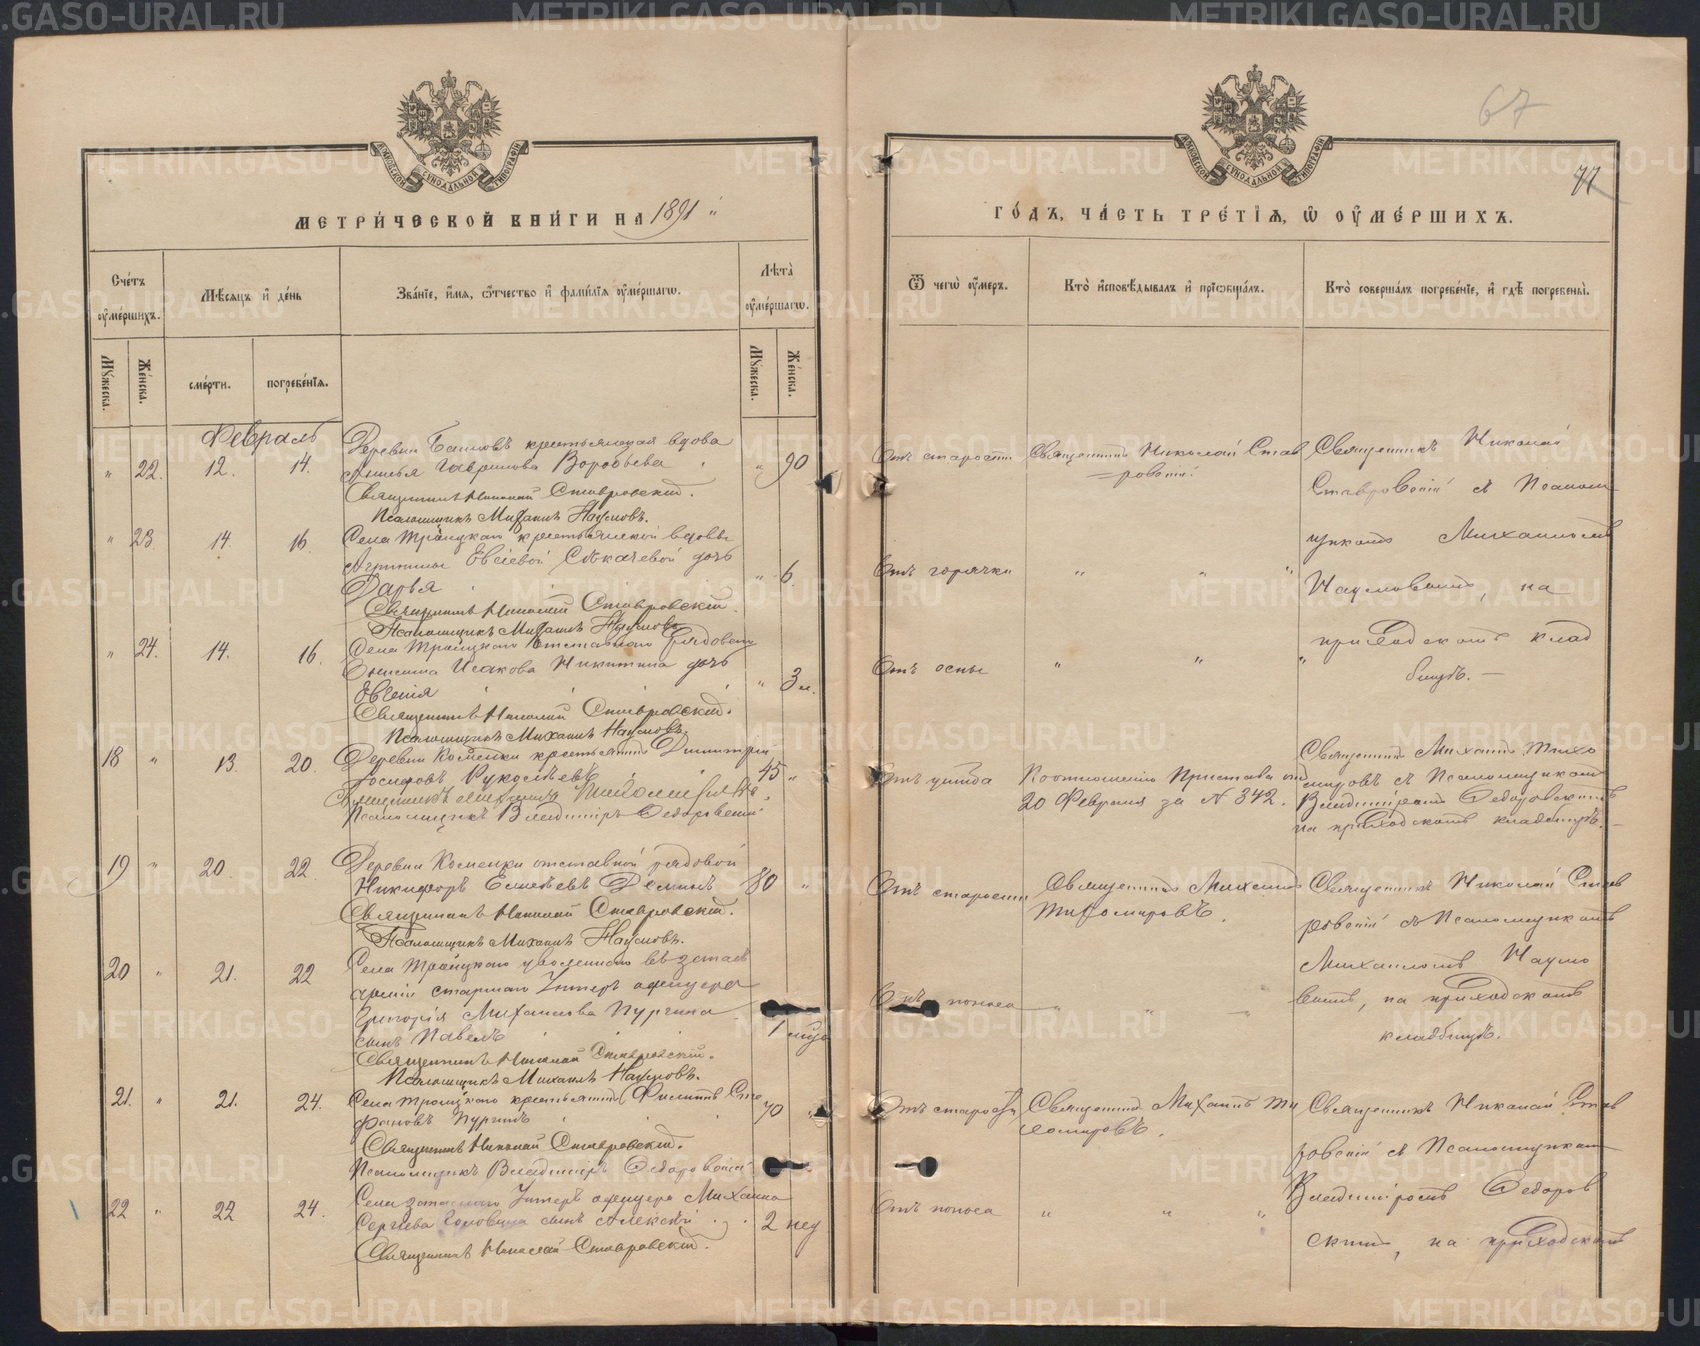 МЕТРИ́ЧЕСКОЙ КНИ́ГИ НА 1891
Сче́тъ оу҆ме́ршихъ.
Мѣ́сяцъ и҆ де́нь
Зва́нїе, и҆́мя, ѻ҆́тчество и҆ фами́лїя оу҆ме́ршагѡ.
Лѣта̀ оу҆ме́ршагѡ.
Мꙋ́жеска.
Же́нска.
сме́рти.
погребе́нїя.
Мꙋ́жеска.
Же́нска.
Февраль
" 22. 12. 14. Деревни крестьянская вдова
Гаврилова Воробьева " 90
Священникъ Николай Ставровскій.
Псаломщикъ Михаилъ Наумовъ.
" 23. 14. 16. Села Троицкаго крестьянской вдовы
Агрипины Евсѣевой дочь
Дарья " 6.
Священникъ Николай Ставровскій.
Псаломщикъ Михаилъ Наумовъ
" 24. 14. 16. Села Троицкаго отставного рядового
Исакова Никитина дочь
Евгенія " 3 м.
Священникъ Николай Ставровскій.
Псаломщикъ Михаилъ Наумовъ.
18 " 13. 20. Деревни крестьянинъ Димитрій
Іосифовъ 45 "
Священникъ Михаилъ Тихомировъ.
Псаломщикъ Владиміръ Федоровскій
19 " 20. 22. Деревни отставной рядовой
Никифоръ Елисѣевъ Деминъ 80 "
Священникъ Николай Ставровскій.
Псаломщикъ Михаилъ Наумовъ.
20 " 21. 22 Села Троицкаго уволеннаго въ запасъ
арміи старшаго Унтеръ офицера
Григорія Михаилова Пургина
сынъ Павелъ 1
Священникъ Николай Ставровскій.
Псаломщикъ Михаилъ Наумовъ.
21. " 21. 24. Села Троицкаго крестьянинъ Филиппъ Сте
фановъ Пургинъ 70 "
Священникъ Николай Ставровскій.
Псаломщикъ Владиміръ Федоровскій
22 " 22 24. Села запаснаго Унтеръ офицера Михаила
Сергѣева сынъ Алексѣй 2 нед
Священникъ Николай Ставровскій.
67
77
ГО́ДЪ, ЧА́СТЬ ТРЕ́ТЇѦ, Ѡ҆ ОУ҆МЕ́РШИХЪ.
Ѿ чегѡ̀ оу҆́меръ.
Кто̀ и҆сповѣ́дывалъ и҆ прїѡбща́лъ.
Кто̀ соверша́лъ погребе́нїе, и҆ гдѣ̀ погребены̀.
Отъ старости Священникъ Николай Став
ровскій.
Священникъ Николай
Ставровскій съ Псалом
щикомъ Михаиломъ
Отъ горячки " " "
Наумовымъ, на
приходскомъ клад
Отъ оспы " " "
бищѣ. —
Отъ По отношенію Пристава отъ
20 Февраля за № 342.
Священникъ Михаилъ Тихо
мировъ съ Псаломщикомъ
Владиміромъ Федоровскимъ
на приходскомъ кладбищѣ. —
Отъ старости Священникъ Михаилъ
Тихомировъ.
Священникъ Николай Став
ровскій съ Псаломщикомъ
Михаиломъ Наумо
Отъ поноса " " "
вымъ, на приходскомъ
кладбищѣ.
Отъ старости Священникъ Михаилъ Ти
хомировъ.
Священникъ Николай Став
ровскій съ Псаломщикомъ
Владиміромъ Федоров
Отъ поноса " " "
скимъ, на приходскомъ
METRIKI.GASO-URAL.RU